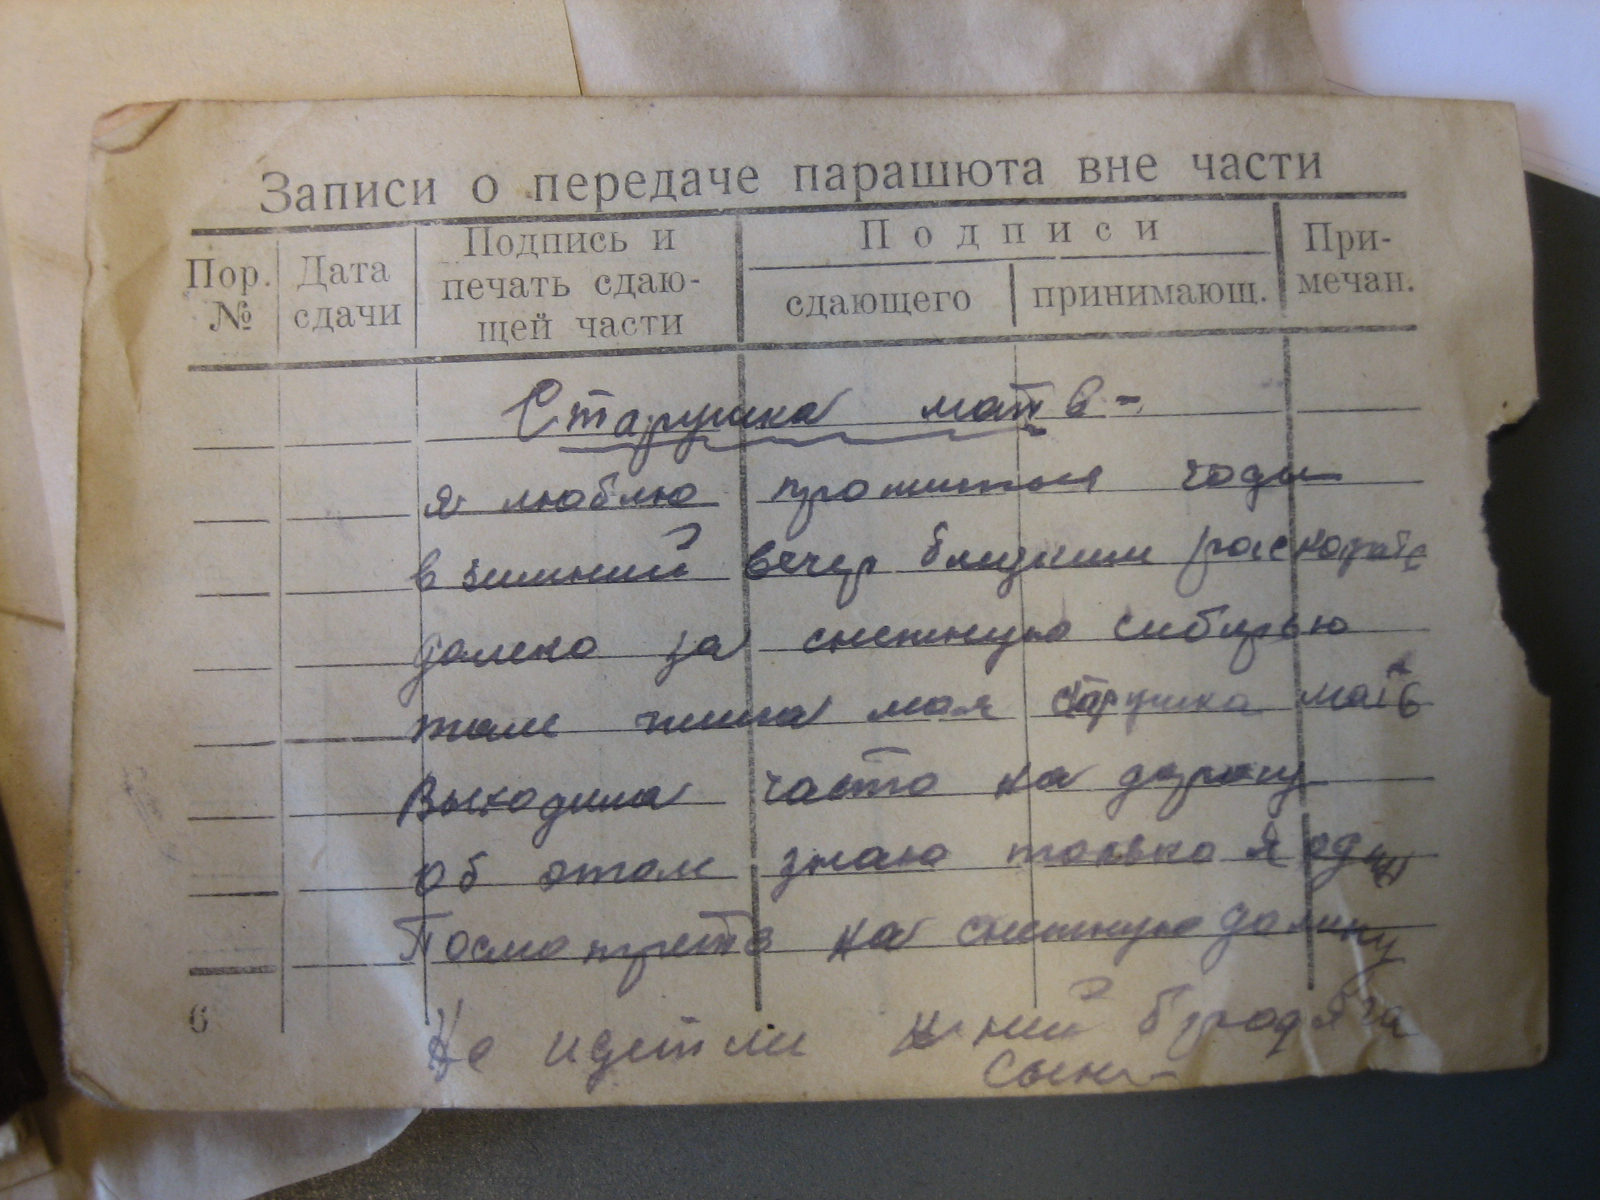 Записи о передаче парашюта вне части
Пор. №
Дата сдачи
Подпись и печать сдаю-
щей части
Подписи
сдающего
принимающ.
При-
мечан.
Старушка мать -
я люблю прошитыя годы
в зимний вечер близким раскозать
далеко за снежную сибирью
там жила моя старушка мать
Выходила часто на дорогу
об этом знаю только я один
Посмотреть на снежную долину
Не идет ли к ний бродяга
сын -
6